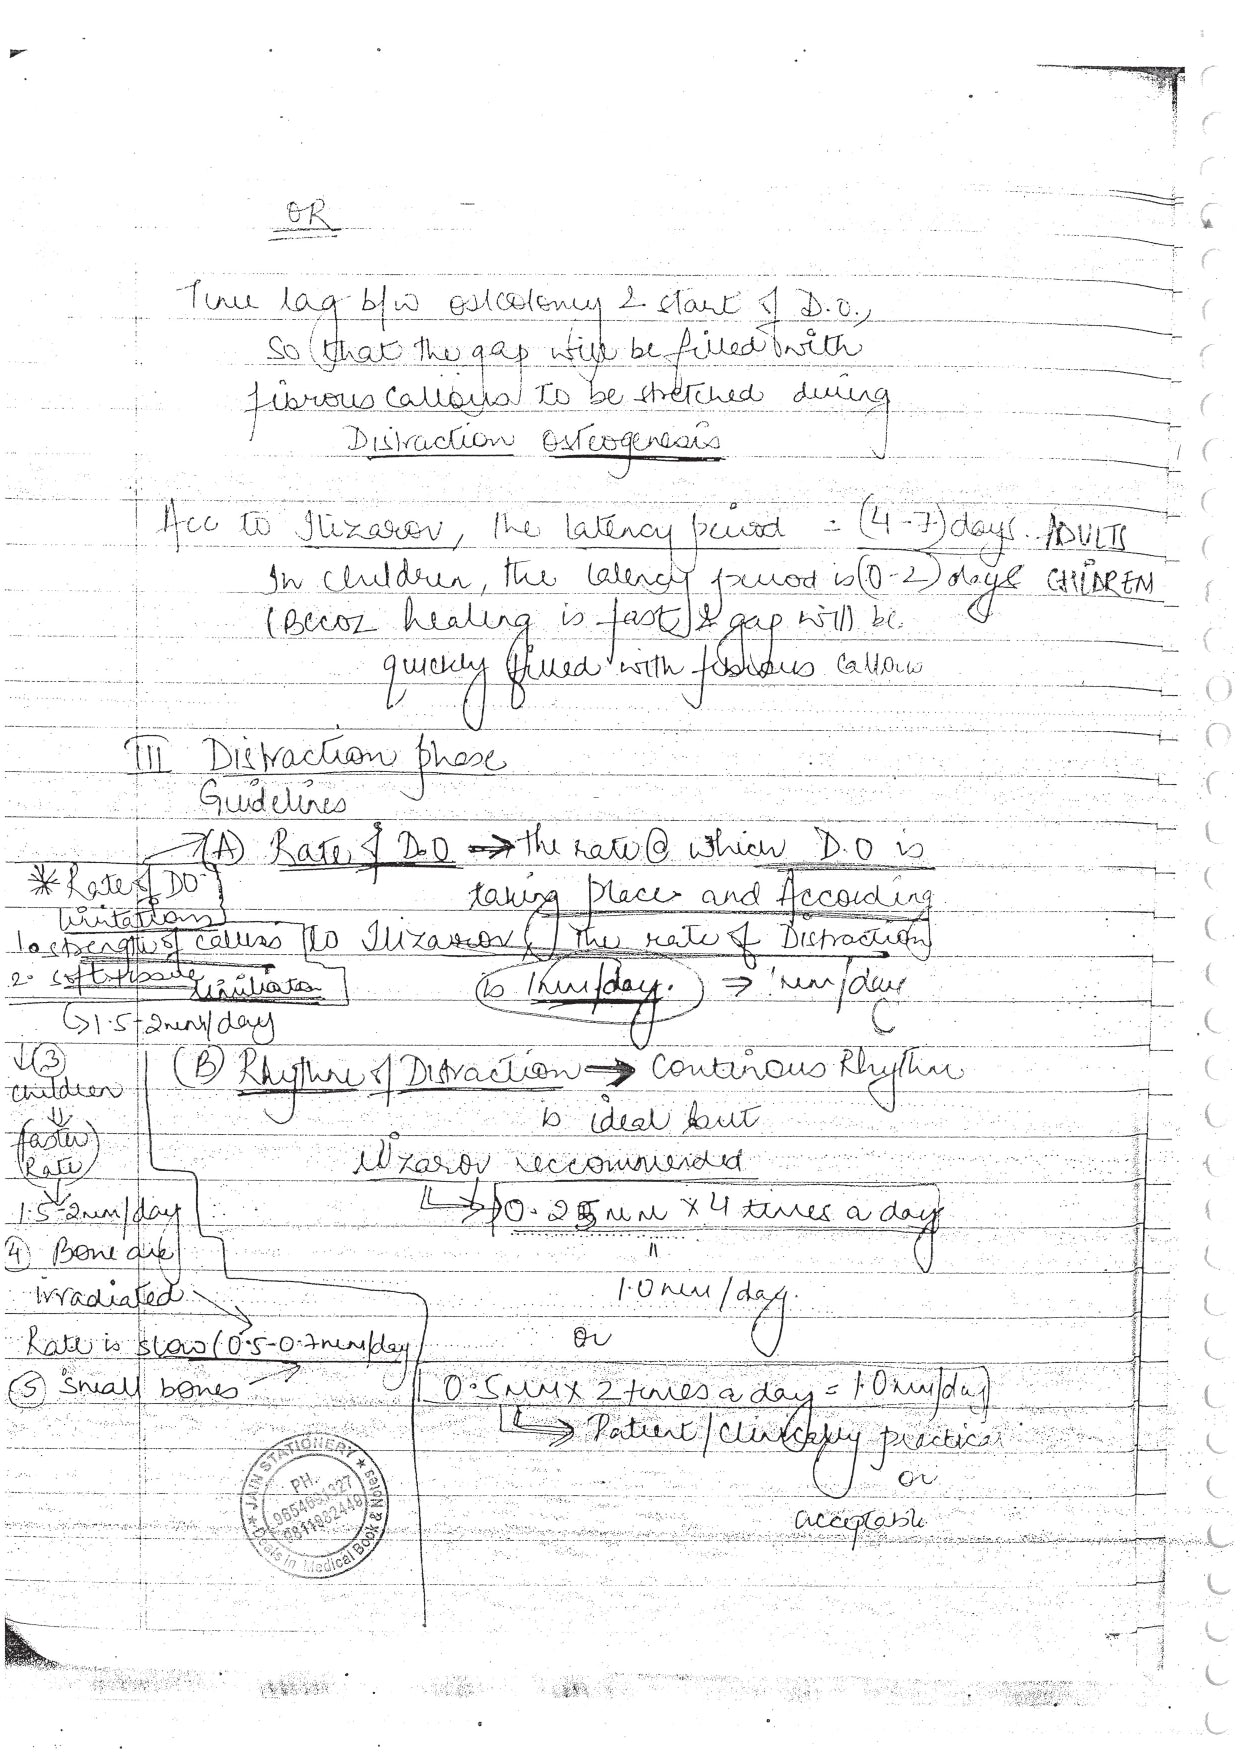 OR
Time lag b/w osteotomy & start of D.O.,
so that the gap will be filled with
fibrous callous to be stretched during
Distraction osteogenesis
Acc to Ilizarov, the latency period = (4-7) days. ADULTS
In children, the latency period is (0-2) days CHILDREN
(Becoz healing is fast) & gap will be
quickly filled with fibrous callous
III Distraction phase
Guidelines
(A) Rate of D.O → the rate @ which D.O is
taking place and According
to Ilizarov, the rate of Distraction
is 1mm/day. ⇒ 1mm/day
* Rate of DO
limitations
1. strength of callus
2. soft tissue
limitation
↳ 1.5-2mm/day
↓ (3)
children
⇓
faster
Rate
↓
1.5-2mm/day
(4) Bone are
irradiated
Rate is slow (0.5-0.7mm/day
(5) Small bones
(B) Rhythm of Distraction → Continous Rhythm
is ideal but
Ilizarov reccommended
↳ 0.25mm × 4 times a day
"
1.0mm/day.
or
0.5mm × 2 times a day = 1.0mm/day
↳ Patient/clinically practical
or
acceptable
★ JAIN STATIONERY ★
PH.
Deals in Medical Book & Notes